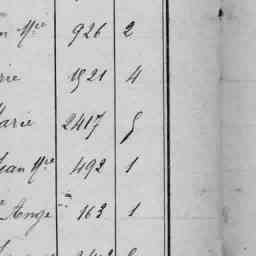 n Mie 926 2
rie 1521 4
Marie 2417
Jean Mie 492 1
Ange 163 1